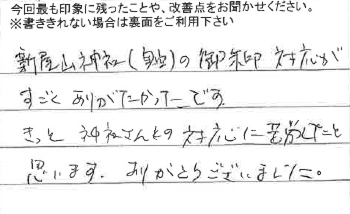 今回最も印象に残ったことや、改善点をお聞かせください。
※書ききれない場合は裏面をご利用下さい
新屋山神社(奥宮)の御朱印 対応が
すごくありがたかったです
きっと 神社さんとの対応に苦労したこと
思います。ありがとうございました。